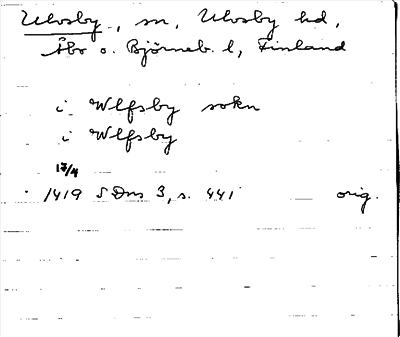 Ulvsby, sn, Ulvsby hd,
Åbo o. Björneb. l, Finland
i Wlfsby sokn
i Wlfsby
17/4
1419 SDns 3, s. 441 orig.